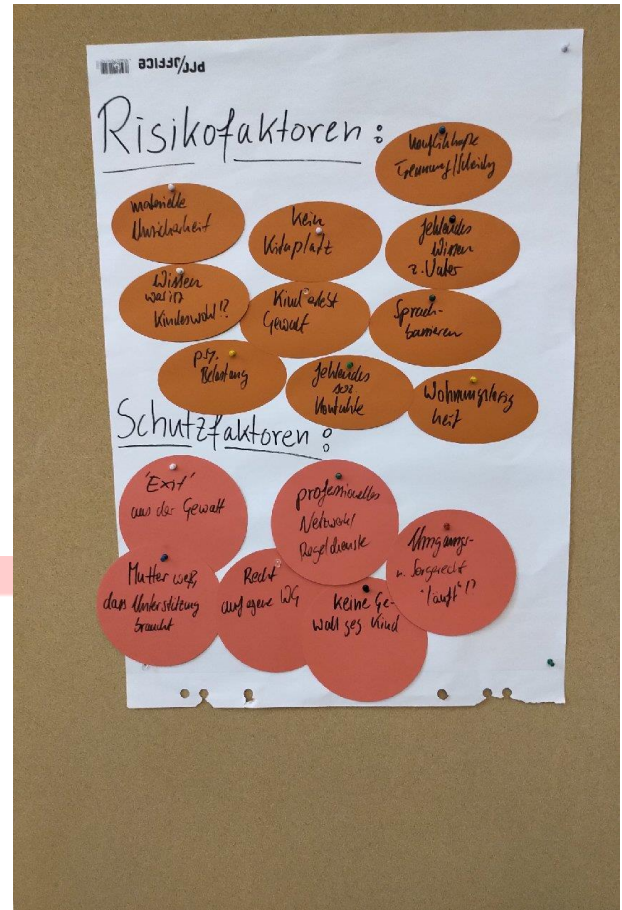 Risikofaktoren:
Trennung/Scheidg
materielle
Unsicherheit
kein
Kitaplatz
fehlendes
Wissen
z. Vater
Wissen
was ist
Kindeswohl!?
Kind erlebt
Gewalt
Sprach-
barrieren
psy.
Belastung
fehlendes
soz
Kontakte
Wohnungslosig
keit
Schutzfaktoren:
'Exit'
aus der Gewalt
professionelles
Netzwerk/
Regeldienste
Umgangs-
u. Sorgerecht
"läuft"!?
Mutter weiß,
dass Unterstützung
braucht
Recht
auf eigene WG
keine Ge-
walt geg Kind